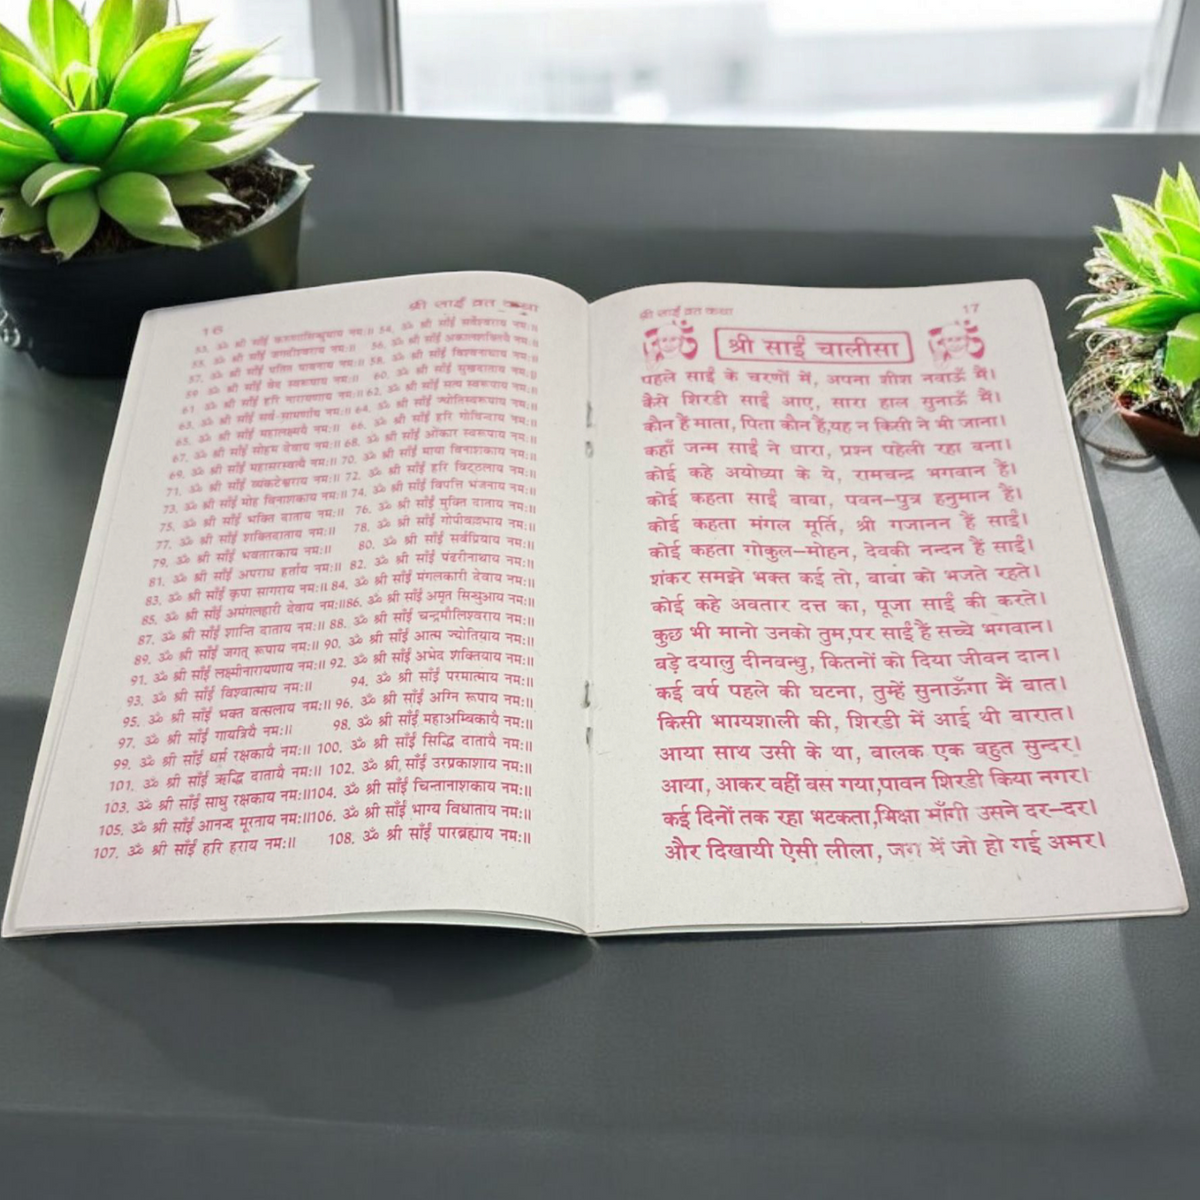 16
श्री साईं व्रत कथा
53. ॐ श्री साँईं करुणासिन्धुवाय नमः॥ 54. ॐ श्री साँईं सर्वेश्वराय नमः॥
55. ॐ श्री साँईं जगदीश्वराय नमः॥ 56. ॐ श्री साँईं नमः॥
57. ॐ श्री साँईं पतित पावनाय नमः॥ 58. ॐ श्री साँईं विश्वनाथाय नमः॥
59. ॐ श्री साँईं वेद स्वरूपाय नमः॥ 60. ॐ श्री साँईं सुखदाताय नमः॥
61. ॐ श्री साँईं हरि नारायणाय नमः॥ 62. ॐ श्री साँईं सत्य स्वरूपाय नमः॥
63. ॐ श्री साँईं सर्व-सामर्थाय नमः॥ 64. ॐ श्री साँईं ज्योतिस्वरूपाय नमः॥
65. ॐ श्री साँईं महालक्ष्म्यै नमः॥ 66. ॐ श्री साँईं हरि गोविन्दाय नमः॥
67. ॐ श्री साँईं सोहम देवाय नमः॥ 68. ॐ श्री साँईं ओंकार स्वरूपाय नमः॥
69. ॐ श्री साँईं महासरस्वत्यै नमः॥ 70. ॐ श्री साँईं माया विनाशकाय नमः॥
71. ॐ श्री साँईं व्यंकटेश्वराय नमः॥ 72. ॐ श्री साँईं हरि विट्ठलाय नमः॥
73. ॐ श्री साँईं मोह विनाशकाय नमः॥ 74. ॐ श्री साँईं विपत्ति भंजनाय नमः॥
75. ॐ श्री साँईं भक्ति दाताय नमः॥ 76. ॐ श्री साँईं मुक्ति दाताय नमः॥
77. ॐ श्री साँईं शक्तिदाताय नमः॥ 78. ॐ श्री साँईं गोपीवल्लभाय नमः॥
79. ॐ श्री साँईं भवतारकाय नमः॥ 80. ॐ श्री साँईं सर्वप्रियाय नमः॥
81. ॐ श्री साँईं अपराध हर्ताय नमः॥ 82. ॐ श्री साँईं पंढरीनाथाय नमः॥
83. ॐ श्री साँईं कृपा सागराय नमः॥ 84. ॐ श्री साँईं मंगलकारी देवाय नमः॥
85. ॐ श्री साँईं अमंगलहारी देवाय नमः॥ 86. ॐ श्री साँईं अमृत सिन्धुआय नमः॥
87. ॐ श्री साँईं शान्ति दाताय नमः॥ 88. ॐ श्री साँईं चन्द्रमौलिश्वराय नमः॥
89. ॐ श्री साँईं जगत् रूपाय नमः॥ 90. ॐ श्री साँईं आत्म ज्योतियाय नमः॥
91. ॐ श्री साँईं लक्ष्मीनारायणाय नमः॥ 92. ॐ श्री साँईं अभेद शक्तियाय नमः॥
93. ॐ श्री साँईं विश्वात्माय नमः॥ 94. ॐ श्री साँईं परमात्माय नमः॥
95. ॐ श्री साँईं भक्त वत्सलाय नमः॥ 96. ॐ श्री साँईं अग्नि रूपाय नमः॥
97. ॐ श्री साँईं गायत्रियै नमः॥ 98. ॐ श्री साँईं महाअम्बिकायै नमः॥
99. ॐ श्री साँईं धर्म रक्षकायै नमः॥ 100. ॐ श्री साँईं सिद्धि दातायै नमः॥
101. ॐ श्री साँईं ऋद्धि दातायै नमः॥ 102. ॐ श्री, साँईं उरप्रकाशाय नमः॥
103. ॐ श्री साँईं साधु रक्षकाय नमः॥ 104. ॐ श्री साँईं चिन्तानाशकाय नमः॥
105. ॐ श्री साँईं आनन्द मूरताय नमः॥ 106. ॐ श्री साँईं भाग्य विधाताय नमः॥
107. ॐ श्री साँईं हरि हराय नमः॥ 108. ॐ श्री साँईं पारब्रह्माय नमः॥
श्री साईं व्रत कथा
17
श्री साईं चालीसा
पहले साईं के चरणों में, अपना शीश नवाऊँ मैं।
कैसे शिरडी साईं आए, सारा हाल सुनाऊँ मैं।
कौन हैं माता, पिता कौन हैं,यह न किसी ने भी जाना।
कहाँ जन्म साईं ने धारा, प्रश्न पहेली रहा बना।
कोई कहे अयोध्या के ये, रामचन्द्र भगवान हैं।
कोई कहता साईं बाबा, पवन-पुत्र हनुमान हैं।
कोई कहता मंगल मूर्ति, श्री गजानन हैं साईं।
कोई कहता गोकुल-मोहन, देवकी नन्दन हैं साईं।
शंकर समझे भक्त कई तो, बाबा को भजते रहते।
कोई कहे अवतार दत्त का, पूजा साईं की करते।
कुछ भी मानो उनको तुम,पर साईं हैं सच्चे भगवान।
बड़े दयालु दीनबन्धु, कितनों को दिया जीवन दान।
कई वर्ष पहले की घटना, तुम्हें सुनाऊँगा मैं बात।
किसी भाग्यशाली की, शिरडी में आई थी बारात।
आया साथ उसी के था, बालक एक बहुत सुन्दर।
आया, आकर वहीं बस गया,पावन शिरडी किया नगर।
कई दिनों तक रहा भटकता,भिक्षा माँगी उसने दर-दर।
और दिखायी ऐसी लीला, जग में जो हो गई अमर।